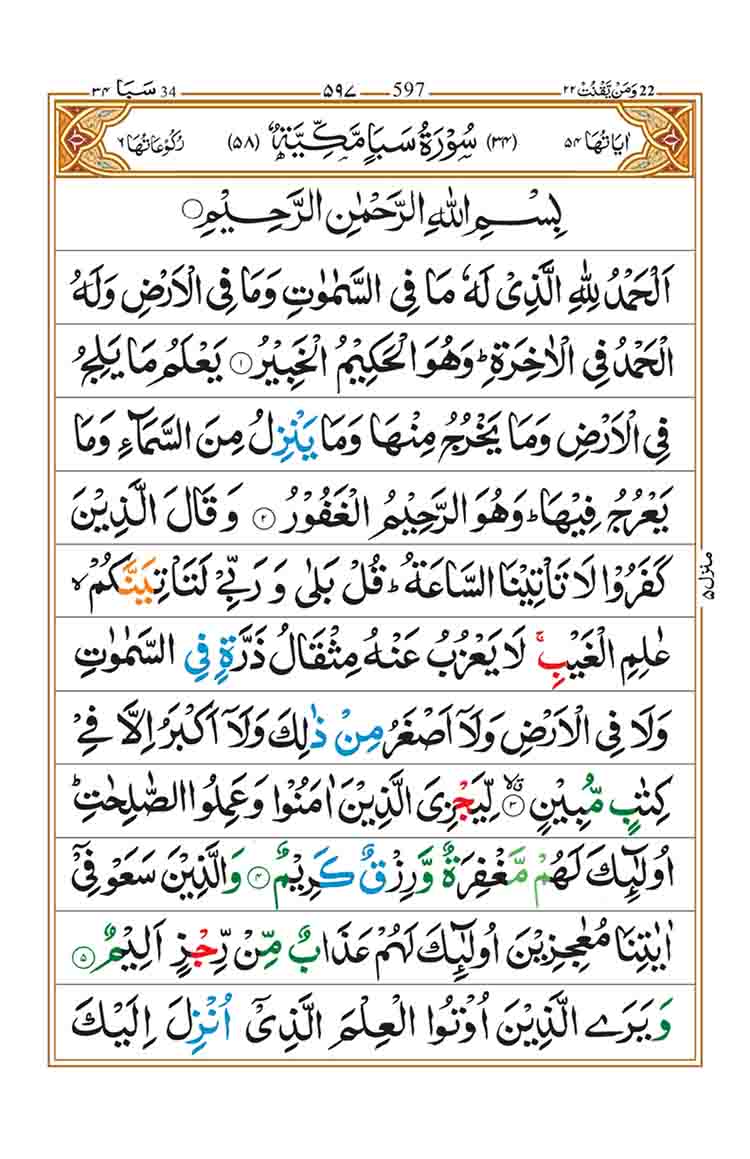 22 وَمَنْ يَّقْنُتْ ٢٢ 597 ٥٩٧ 34 سَبَا ٣٤
اٰيَاتُهَا ٥٤ (٣٤) سُوْرَةُ سَبَاٍ مَّكِّيَّةٌ (٥٨) رُكُوْعَاتُهَا ٦
بِسْمِ اللّٰهِ الرَّحْمٰنِ الرَّحِيْمِ
اَلْحَمْدُ لِلّٰهِ الَّذِيْ لَهٗ مَا فِي السَّمٰوٰتِ وَمَا فِي الْاَرْضِ وَلَهُ
الْحَمْدُ فِي الْاٰخِرَةِ ؕ وَهُوَ الْحَكِيْمُ الْخَبِيْرُ ١ يَعْلَمُ مَا يَلِجُ
فِي الْاَرْضِ وَمَا يَخْرُجُ مِنْهَا وَمَا يَنْزِلُ مِنَ السَّمَآءِ وَمَا
يَعْرُجُ فِيْهَا ؕ وَهُوَ الرَّحِيْمُ الْغَفُوْرُ ٢ وَقَالَ الَّذِيْنَ
كَفَرُوْا لَا تَاْتِيْنَا السَّاعَةُ ؕ قُلْ بَلٰى وَرَبِّيْ لَتَاْتِيَنَّكُمْ ۙ
عٰلِمِ الْغَيْبِ ۚ لَا يَعْزُبُ عَنْهُ مِثْقَالُ ذَرَّةٍ فِي السَّمٰوٰتِ
وَلَا فِي الْاَرْضِ وَلَآ اَصْغَرُ مِنْ ذٰلِكَ وَلَآ اَكْبَرُ اِلَّا فِيْ
كِتٰبٍ مُّبِيْنٍ ٣ لِّيَجْزِيَ الَّذِيْنَ اٰمَنُوْا وَعَمِلُوا الصّٰلِحٰتِ ؕ
اُولٰٓئِكَ لَهُمْ مَّغْفِرَةٌ وَّرِزْقٌ كَرِيْمٌ ٤ وَالَّذِيْنَ سَعَوْ فِيْٓ
اٰيٰتِنَا مُعٰجِزِيْنَ اُولٰٓئِكَ لَهُمْ عَذَابٌ مِّنْ رِّجْزٍ اَلِيْمٌ ٥
وَيَرَى الَّذِيْنَ اُوْتُوا الْعِلْمَ الَّذِيْٓ اُنْزِلَ اِلَيْكَ
منزل ٥